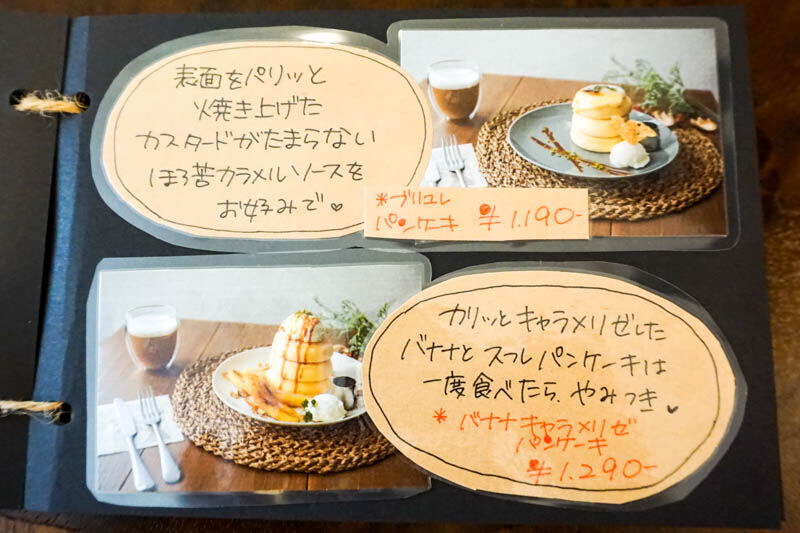 表面をパリッと
焼き上げた
カスタードがたまらない
ほろ苦カラメルソースを
お好みで♥
*ブリュレ
パンケーキ ¥1.190-
カリッとキャラメリゼした
バナナとスフレパンケーキは
一度食べたら、やみつき♥
*バナナキャラメリゼ
パンケーキ
¥1.290-